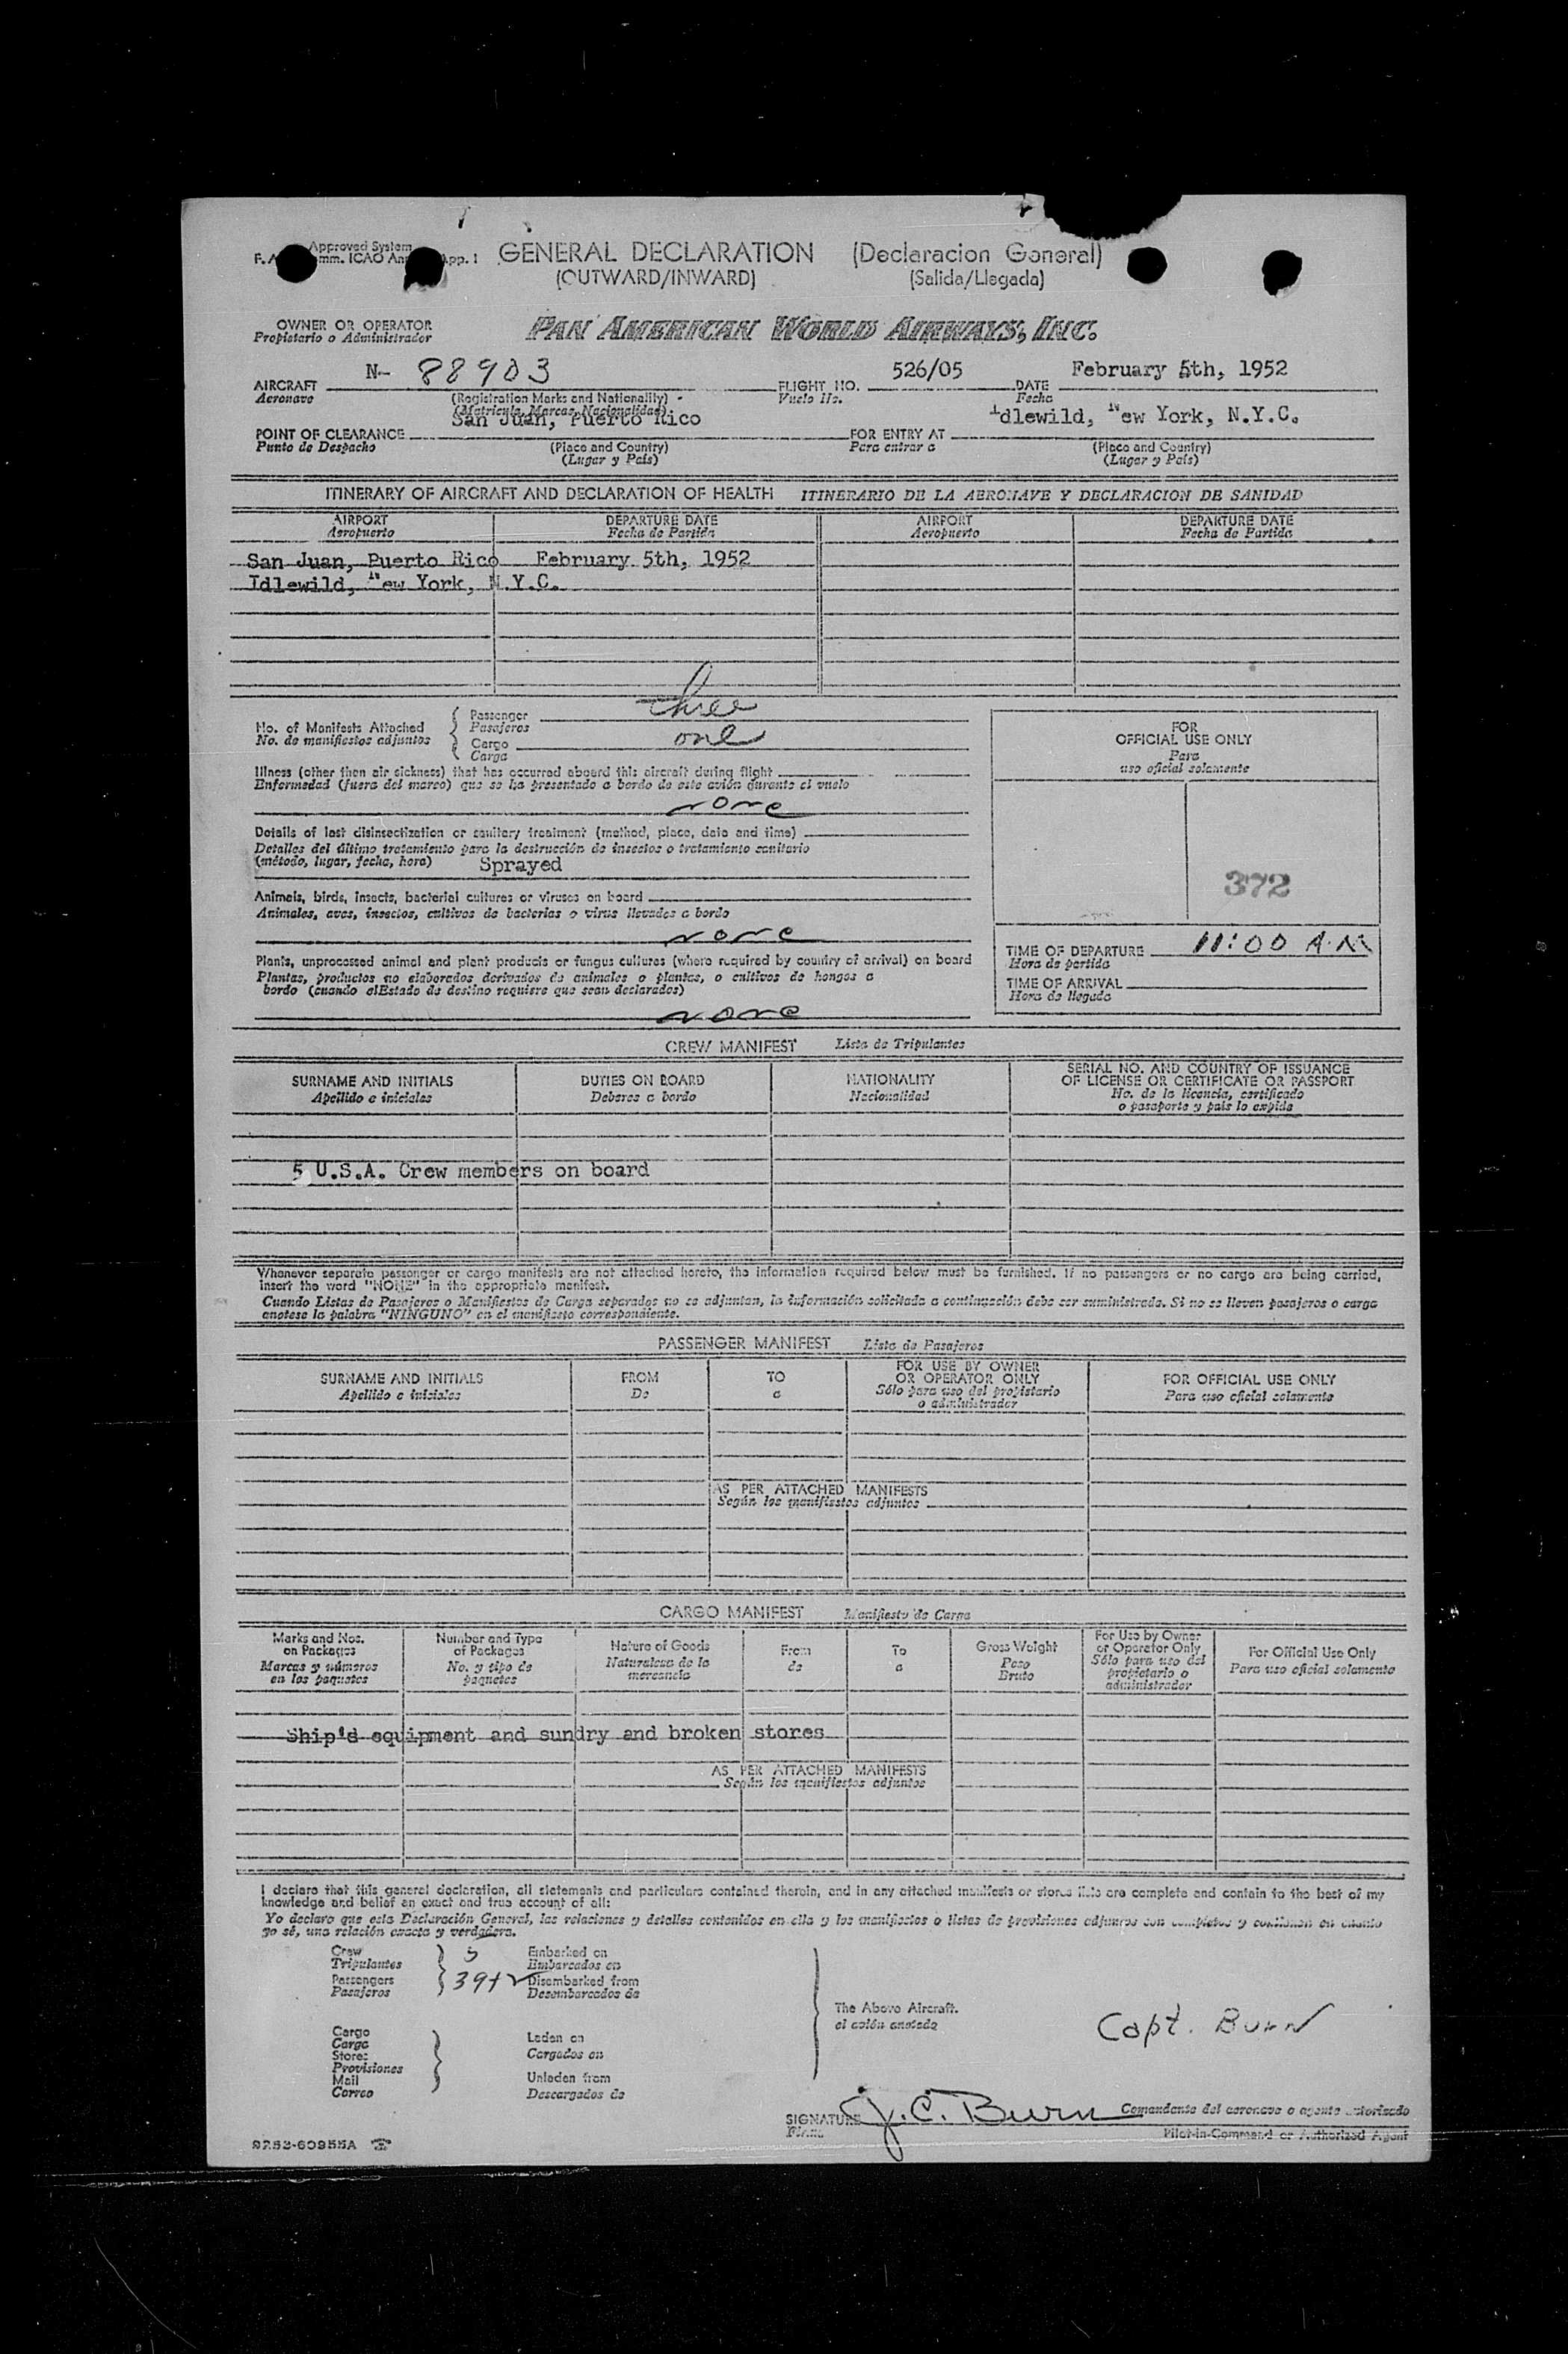 Approved System
GENERAL DECLARATION (Declaracion General)
mm. ICAO An App. 1
(OUTWARD/INWARD) (Salida/Llegada)
OWNER OR OPERATOR
Propietario o Administrador
PAN AMERICAN WORLD AIRWAYS, INC.
N- 88903 526/05 February 5th, 1952
AIRCRAFT FLIGHT NO. DATE
Aeronave (Registration Marks and Nationality) Vuelo No. Fecha
(Matricula, Marcas, Nacionalidad)
San Juan, Puerto Rico Idlewild, New York, N.Y.C.
POINT OF CLEARANCE FOR ENTRY AT
Punto de Despacho (Place and Country) Para entrar a (Place and Country)
(Lugar y País) (Lugar y País)
ITINERARY OF AIRCRAFT AND DECLARATION OF HEALTH ITINERARIO DE LA AERONAVE Y DECLARACION DE SANIDAD
AIRPORT DEPARTURE DATE AIRPORT DEPARTURE DATE
Aeropuerto Fecha de Partida Aeropuerto Fecha de Partida
San Juan, Puerto Rico February 5th, 1952
Idlewild, New York, N.Y.C.
No. of Manifests Attached Passenger three
No. de manifiestos adjuntos Pasajeros
Cargo one
Carga
FOR
OFFICIAL USE ONLY
Para
uso oficial solamente
Illness (other than air sickness) that has occurred aboard this aircraft during flight
Enfermedad (fuera del mareo) que se ha presentado a bordo de este avión durante el vuelo
none
Details of last disinsectization or sanitary treatment (method, place, date and time)
Detalles del último tratamiento para la destrucción de insectos o tratamiento sanitario
(método, lugar, fecha, hora) Sprayed
372
Animals, birds, insects, bacterial cultures or viruses on board
Animales, aves, insectos, cultivos de bacterias o virus llevados a bordo
none
TIME OF DEPARTURE 11:00 A.M.
Hora de partida
Plants, unprocessed animal and plant products or fungus cultures (where required by country of arrival) on board
Plantas, productos no elaborados derivados de animales o plantas, o cultivos de hongos a
bordo (cuando elEstado de destino requiere que sean declarados)
none
TIME OF ARRIVAL
Hora de llegada
CREW MANIFEST Lista de Tripulantes
SURNAME AND INITIALS DUTIES ON BOARD NATIONALITY SERIAL NO. AND COUNTRY OF ISSUANCE
OF LICENSE OR CERTIFICATE OR PASSPORT
Apellido e iniciales Deberes a bordo Nacionalidad No. de la licencia, certificado
o pasaporte y país lo expide
5 U.S.A. Crew members on board
Whenever separate passenger or cargo manifests are not attached hereto, the information required below must be furnished. If no passengers or no cargo are being carried,
insert the word "NONE" in the appropriate manifest.
Cuando Listas de Pasajeros o Manifiestos de Carga separados no se adjuntan, la información solicitada a continuación debe ser suministrada. Si no se llevan pasajeros o carga
anotese la palabra "NINGUNO" en el manifiesto correspondiente.
PASSENGER MANIFEST Lista de Pasajeros
SURNAME AND INITIALS FROM TO FOR USE BY OWNER
OR OPERATOR ONLY FOR OFFICIAL USE ONLY
Apellido e iniciales De a Sólo para uso del propietario
o administrador Para uso oficial solamente
AS PER ATTACHED MANIFESTS
Según los manifiestos adjuntos
CARGO MANIFEST Manifiesto de Carga
Marks and Nos.
on Packages
Marcas y números
en los paquetes
Number and Type
of Packages
No. y tipo de
paquetes
Nature of Goods
Naturaleza de la
mercancía
From
de
To
a
Gross Weight
Peso
Bruto
For Use by Owner
or Operator Only
Sólo para uso del
propietario o
administrador
For Official Use Only
Para uso oficial solamente
Ship's equipment and sundry and broken stores
AS PER ATTACHED MANIFESTS
Según los manifiestos adjuntos
I declare that this general declaration, all statements and particulars contained therein, and in any attached manifests or stores lists are complete and contain to the best of my
knowledge and belief an exact and true account of all:
Yo declaro que esta Declaración General, las relaciones y detalles contenidos en ella y los manifiestos o listas de provisiones adjuntos son completos y contienen en cuanto
yo sé, una relación exacta y verdadera.
Crew 5 Embarked on
Tripulantes Embarcados en
Passengers 39+ Disembarked from
Pasajeros Desembarcados de
The Above Aircraft.
el avión anotado
Capt. Burn
Cargo
Carga Laden on
Stores Cargados en
Provisiones
Mail Unladen from
Correo Descargados de
SIGNATURE J. C. Burn Comandante del aeronave o agente autorizado
Firma Pilot-in-Command or Authorized Agent
9252-60955A